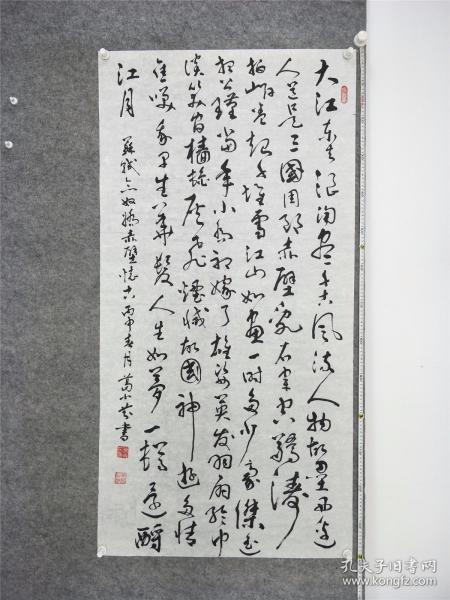 大江东去浪淘尽千古风流人物故垒西边
人道是三國周郎赤壁乱石穿空驚涛
拍岸卷起千堆雪江山如画一时多少豪傑遥
想公瑾当年小乔初嫁了雄姿英发羽扇纶巾
谈笑间樯艣灰飞煙滅故國神游多情
应笑我早生华髮人生如夢一樽还酹
江月 蘇軾念奴娇赤壁怀古丙申春月葛小芸書
孔夫子旧书网
www.kongfz.com